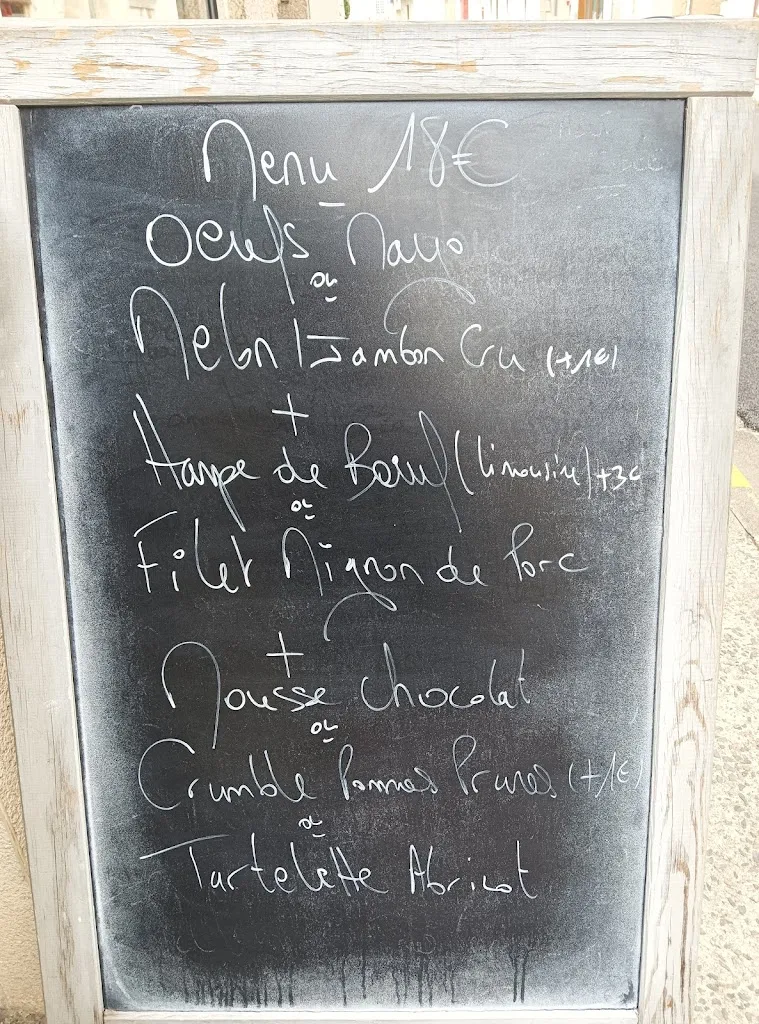 Menu 18€
Oeufs Mayo
ou
Melon / Jambon Cru (+1€)
+
Hampe de Boeuf (Limousine) +3€
ou
Filet Mignon de Porc
+
Mousse chocolat
ou
Crumble Pommes Prunes (+1€)
ou
Tartelette Abricot